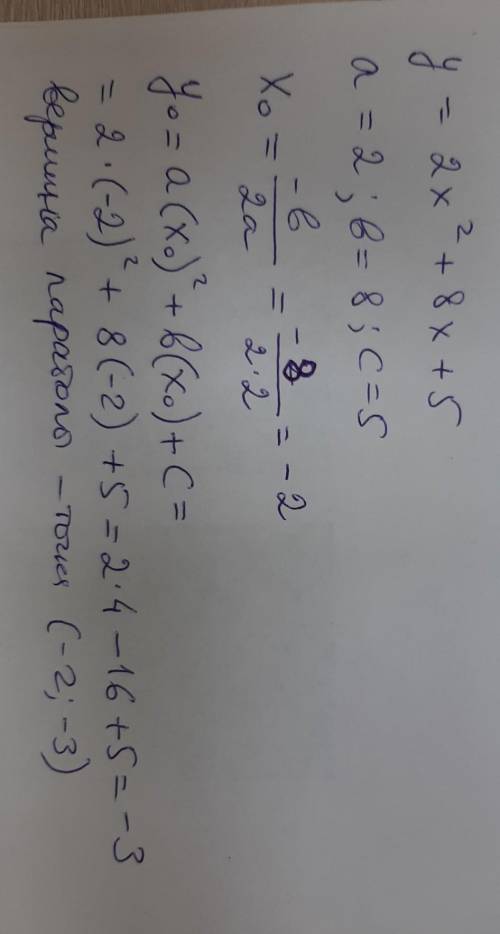 y = 2x² + 8x + 5
a = 2; b = 8; c = 5
x₀ = -b/2a = -8/2·2 = -2
y₀ = a(x₀)² + b(x₀) + c =
= 2·(-2)² + 8(-2) + 5 = 2·4 - 16 + 5 = -3
вершина параболы - точка (-2; -3)